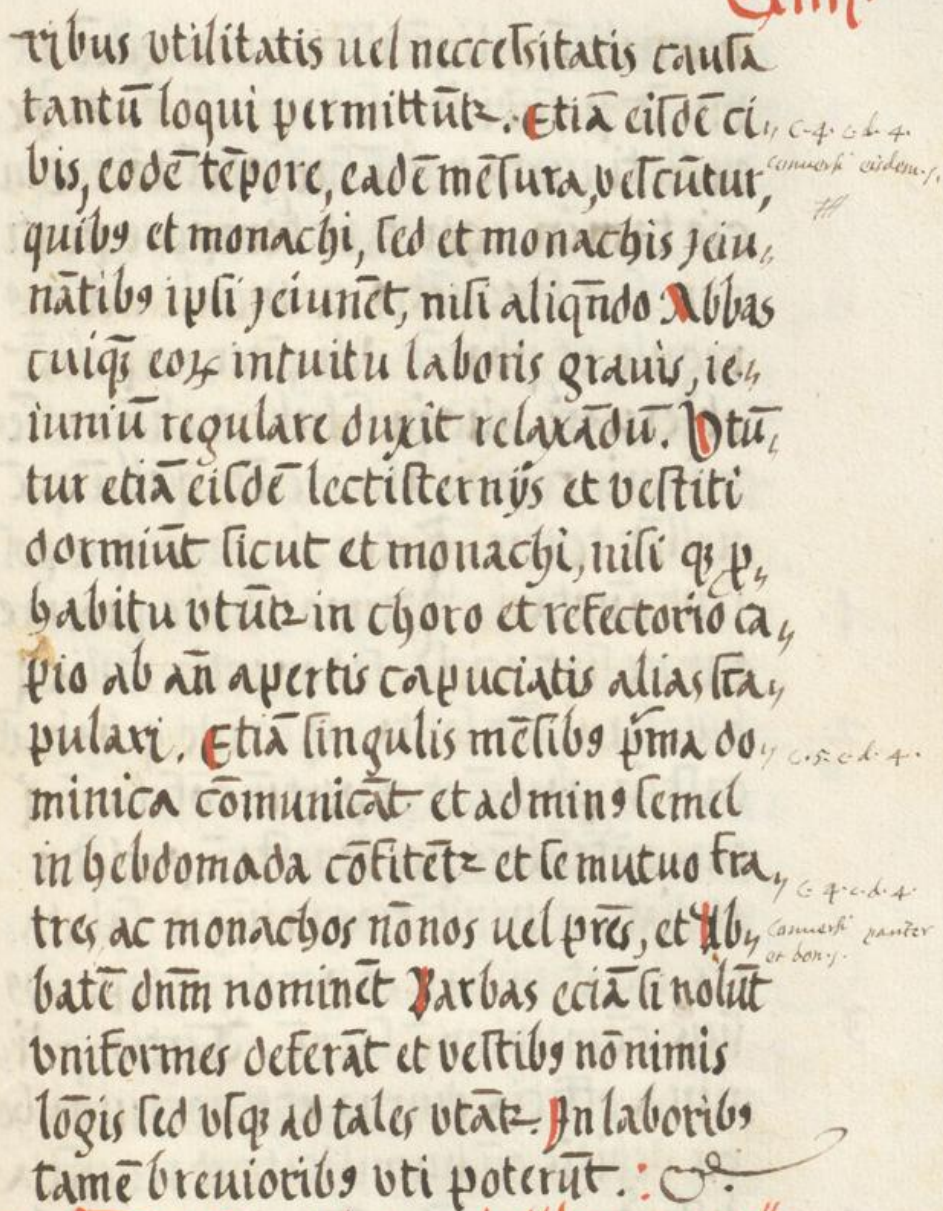 ribus vtilitatis uel neccessitatis causa
tantū loqui permittūtꝛ. Etiā eisdē ci„
bis, eodē tēpore, eadē mēsura, vescūtur,
quibꝯ et monachi, sed et monachis jeiu„
nātibꝯ ipsi jeiunēt, nisi aliqn̄do Abbas
cuiqꝫ eoꝝ intuitu laboris grauis, ie„
iuniū regulare duxit relaxādū. Vtū„
tur etiā eisdē lectisternijs et vestiti
dormiūt sicut et monachi, nisi qꝫ ꝓ„
habitu vtūtꝛ in choro et refectorio ca„
pio ab an̄ apertis capuciatis alias sca„
pulari. Etiā singulis mēsibꝯ pͥma do„
minica cōmunicāt et ad minꝯ semel
in hebdomada cōfitētꝛ et se mutuo fra„
tres ac monachos nōnos uel pr̄es, et Ab„
batē dn̄m nominēt Barbas eciā si nolūt
vniformes deferāt et vestibꝯ nō nimis
lōgis sed vsqꝫ ad tales vtātꝛ. In laboribꝯ
tamē breuioribꝯ vti poterūt.
c. 4. c. d. 4.
conuersi eisdem
c. 5. c. d. 4.
c. 4. c. d. 4.
conuersi